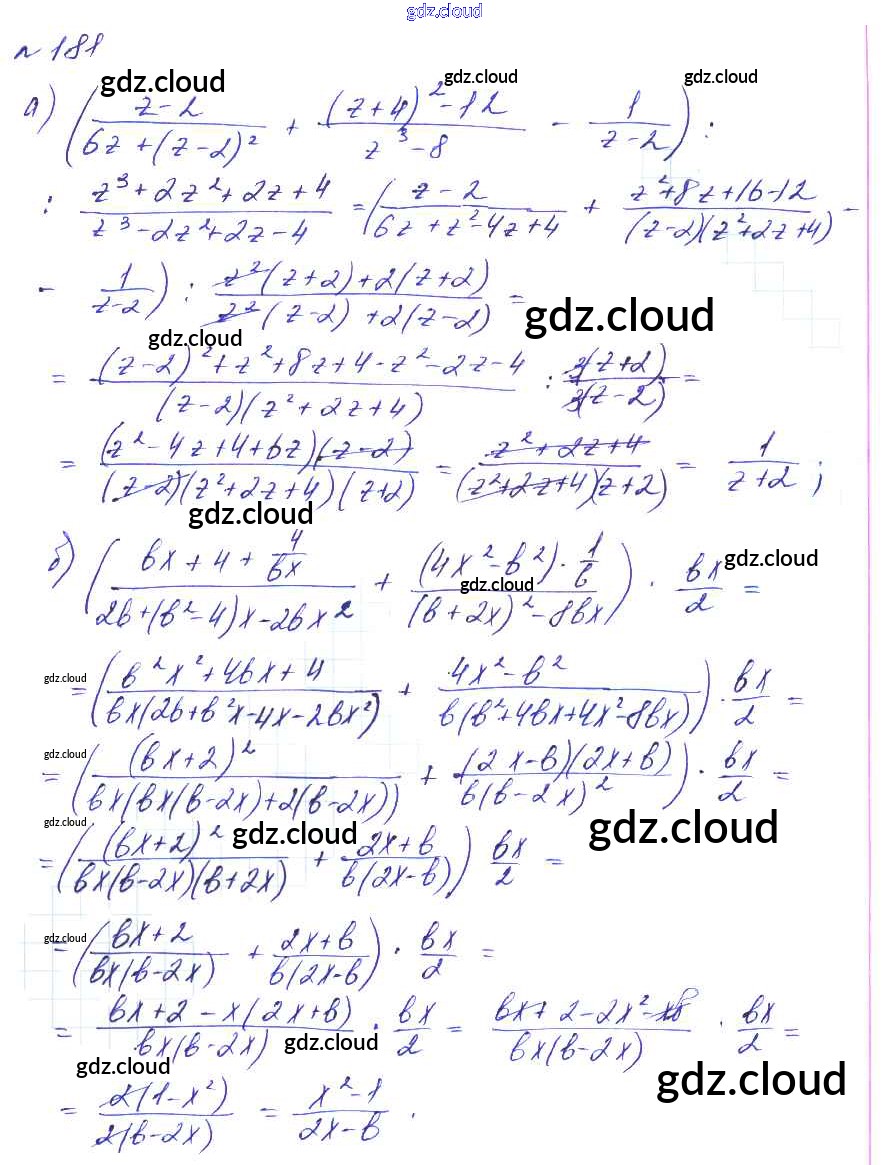 gdz.cloud
№ 181
gdz.cloud gdz.cloud gdz.cloud
а) ( (z-2)/(6z+(z-2)²) + ((z+4)²-12)/(z³-8) - 1/(z-2) ) :
: (z³+2z²+2z+4)/(z³-2z²+2z-4) = ( (z-2)/(6z+z²-4z+4) + (z²+8z+16-12)/((z-2)(z²+2z+4)) -
- 1/(z-2) ) : (z²(z+2)+2(z+2))/(z²(z-2)+2(z-2)) =
gdz.cloud
gdz.cloud
= ((z-2)²+z²+8z+4-z²-2z-4)/((z-2)(z²+2z+4)) : (z+2)/(z-2) =
= ((z²-4z+4+6z)(z-2))/((z-2)(z²+2z+4)(z+2)) = (z²+2z+4)/((z²+2z+4)(z+2)) = 1/(z+2) ;
gdz.cloud
б) ( (bx+4+4/(bx))/(2b+(b²-4)x-2bx²) + ((4x²-b²)·1/b)/((b+2x)²-8bx) ) · bx/2 =
gdz.cloud
gdz.cloud
gdz.cloud
= ( (b²x²+4bx+4)/(bx(2b+b²x-4x-2bx²)) + (4x²-b²)/(b(b²+4bx+4x²-8bx)) ) · bx/2 =
gdz.cloud
= ( (bx+2)²/(bx(bx(b-2x)+2(b-2x))) + ((2x-b)(2x+b))/(b(b-2x)²) ) · bx/2 =
gdz.cloud gdz.cloud gdz.cloud
= ( (bx+2)²/(bx(b-2x)(b+2x)) + (2x+b)/(b(2x-b)) ) bx/2 =
gdz.cloud
= ( (bx+2)/(bx(b-2x)) + (2x+b)/(b(2x-b)) ) · bx/2 =
= (bx+2-x(2x+b))/(bx(b-2x)) · bx/2 = (bx+2-2x²-xb)/(bx(b-2x)) · bx/2 =
gdz.cloud
gdz.cloud gdz.cloud
= (2(1-x²))/(2(b-2x)) = (x²-1)/(2x-b) .